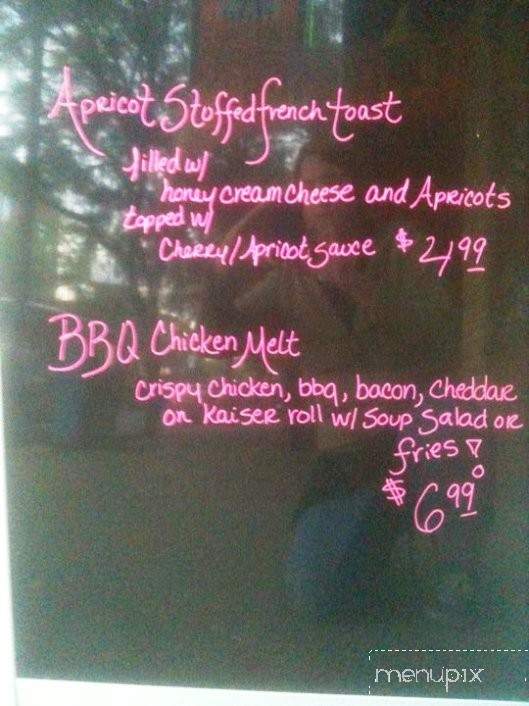 Apricot Stoffed french toast
filled w/
honey cream cheese and Apricots
topped w/
Cherry/Apricot sauce $4.99
BBQ Chicken Melt
crispy chicken, bbq, bacon, cheddar
on kaiser roll w/ Soup Salad or
fries!
$6.99
menupix